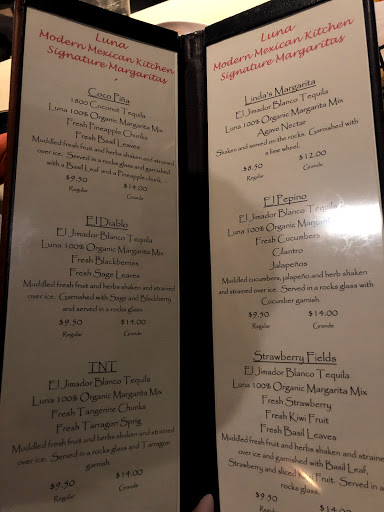 Luna
Modern Mexican Kitchen
Signature Margaritas
Coco Piña
1800 Coconut Tequila
Luna 100% Organic Margarita Mix
Fresh Pineapple Chunks
Fresh Basil Leaves
Muddled fresh fruit and herbs shaken and strained
over ice. Served in a rocks glass and garnished
with a Basil Leaf and a Pineapple chunk.
$9.50 $14.00
Regular Grande
El Diablo
El Jimador Blanco Tequila
Luna 100% Organic Margarita Mix
Fresh Blackberries
Fresh Sage Leaves
Muddled fresh fruit and herbs shaken and strained
over ice. Garnished with Sage and Blackberry
and served in a rocks glass
$9.50 $14.00
Regular Grande
TNT
El Jimador Blanco Tequila
Luna 100% Organic Margarita Mix
Fresh Tangerine Chunks
Fresh Tarragon Sprig
Muddled fresh fruit and herbs shaken and strained
over ice. Served in a rocks glass and Tarragon
garnish.
$9.50 $14.00
Regular Grande
Luna
Modern Mexican Kitchen
Signature Margaritas
Linda's Margarita
El Jimador Blanco Tequila
Luna 100% Organic Margarita Mix
Agave Nectar
Shaken and served on the rocks. Garnished with
a lime wheel.
$8.50 $12.00
Regular Grande
El Pepino
El Jimador Blanco Tequila
Luna 100% Organic Margarita
Fresh Cucumbers
Cilantro
Jalapeños
Muddled cucumbers, jalapeño and herb shaken
and strained over ice. Served in a rocks glass with
Cucumber garnish.
$9.50 $14.00
Regular Grande
Strawberry Fields
El Jimador Blanco Tequila
Luna 100% Organic Margarita Mix
Fresh Strawberry
Fresh Kiwi Fruit
Fresh Basil Leaves
Muddled fresh fruit and herbs shaken and strained
over ice and garnished with Basil Leaf,
Strawberry and sliced Fruit. Served in a
rocks glass.
$9.50 $14.00